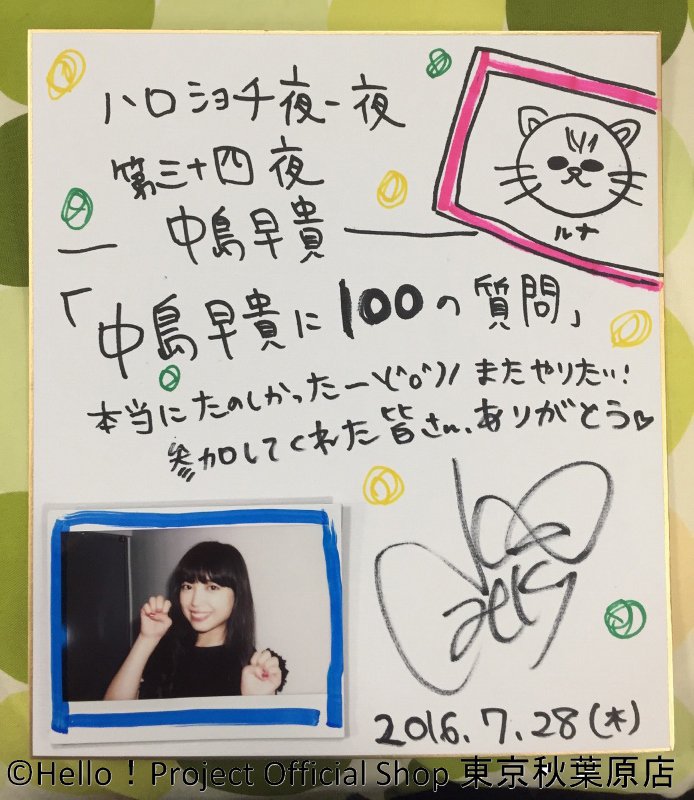 ハロショ千夜一夜
第三十四夜
— 中島早貴 —
「中島早貴に100の質問」
本当にたのしかったーヽ(°o°)ノ またやりたい!
参加してくれた皆さん、ありがとう♡
ルナ
2016.7.28(木)
©Hello！Project Official Shop 東京秋葉原店